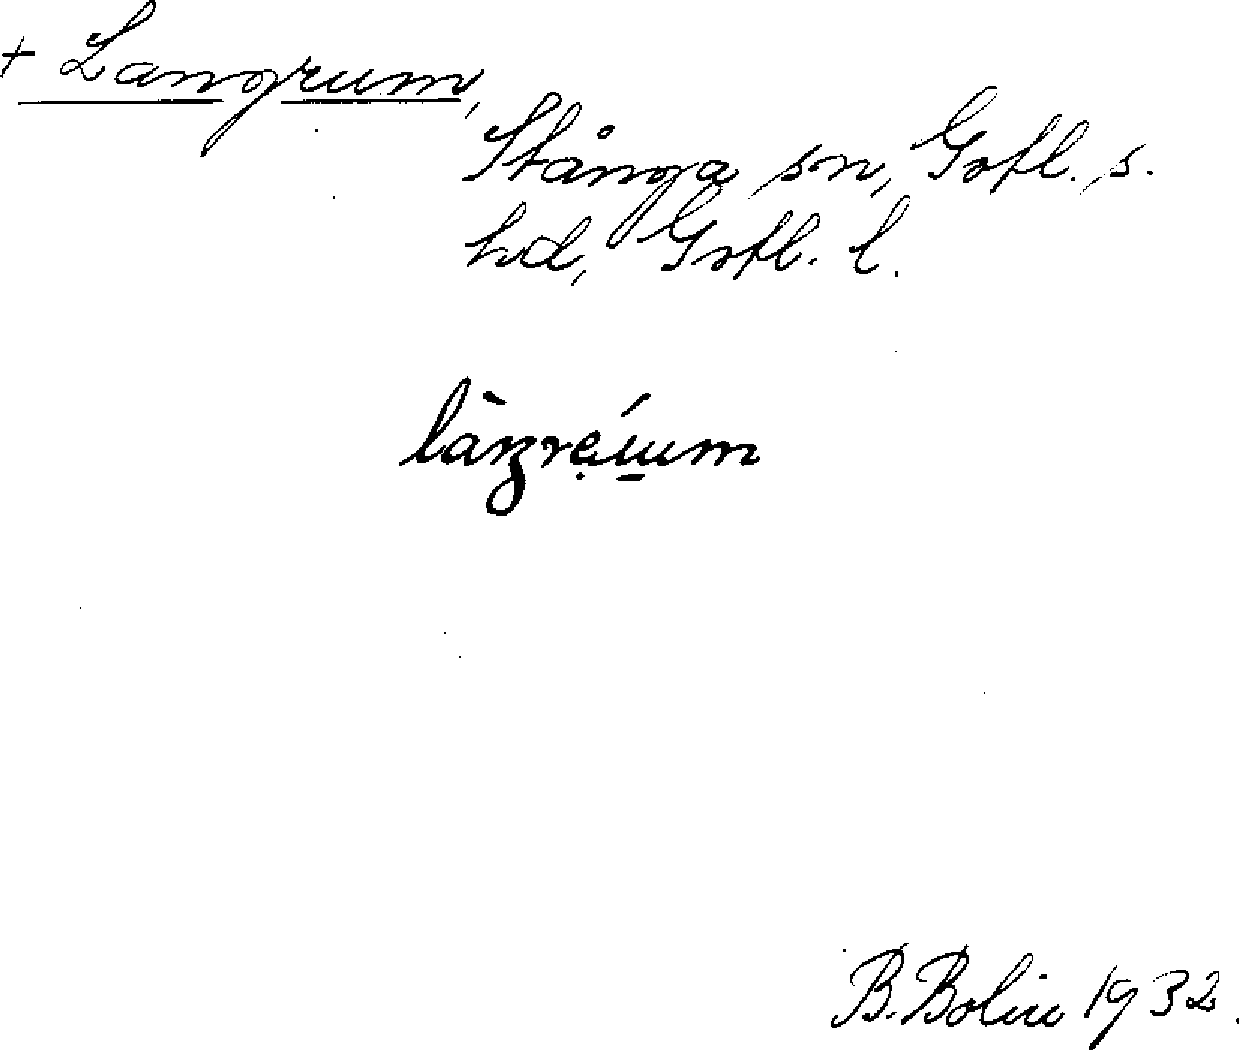 + Langrum,
Stånga sn, Gotl. s.
hd, Gotl. l.
B. Bolin 1932.